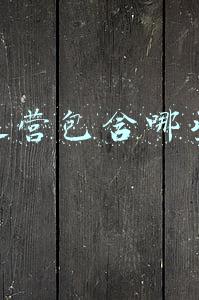 营包含哪